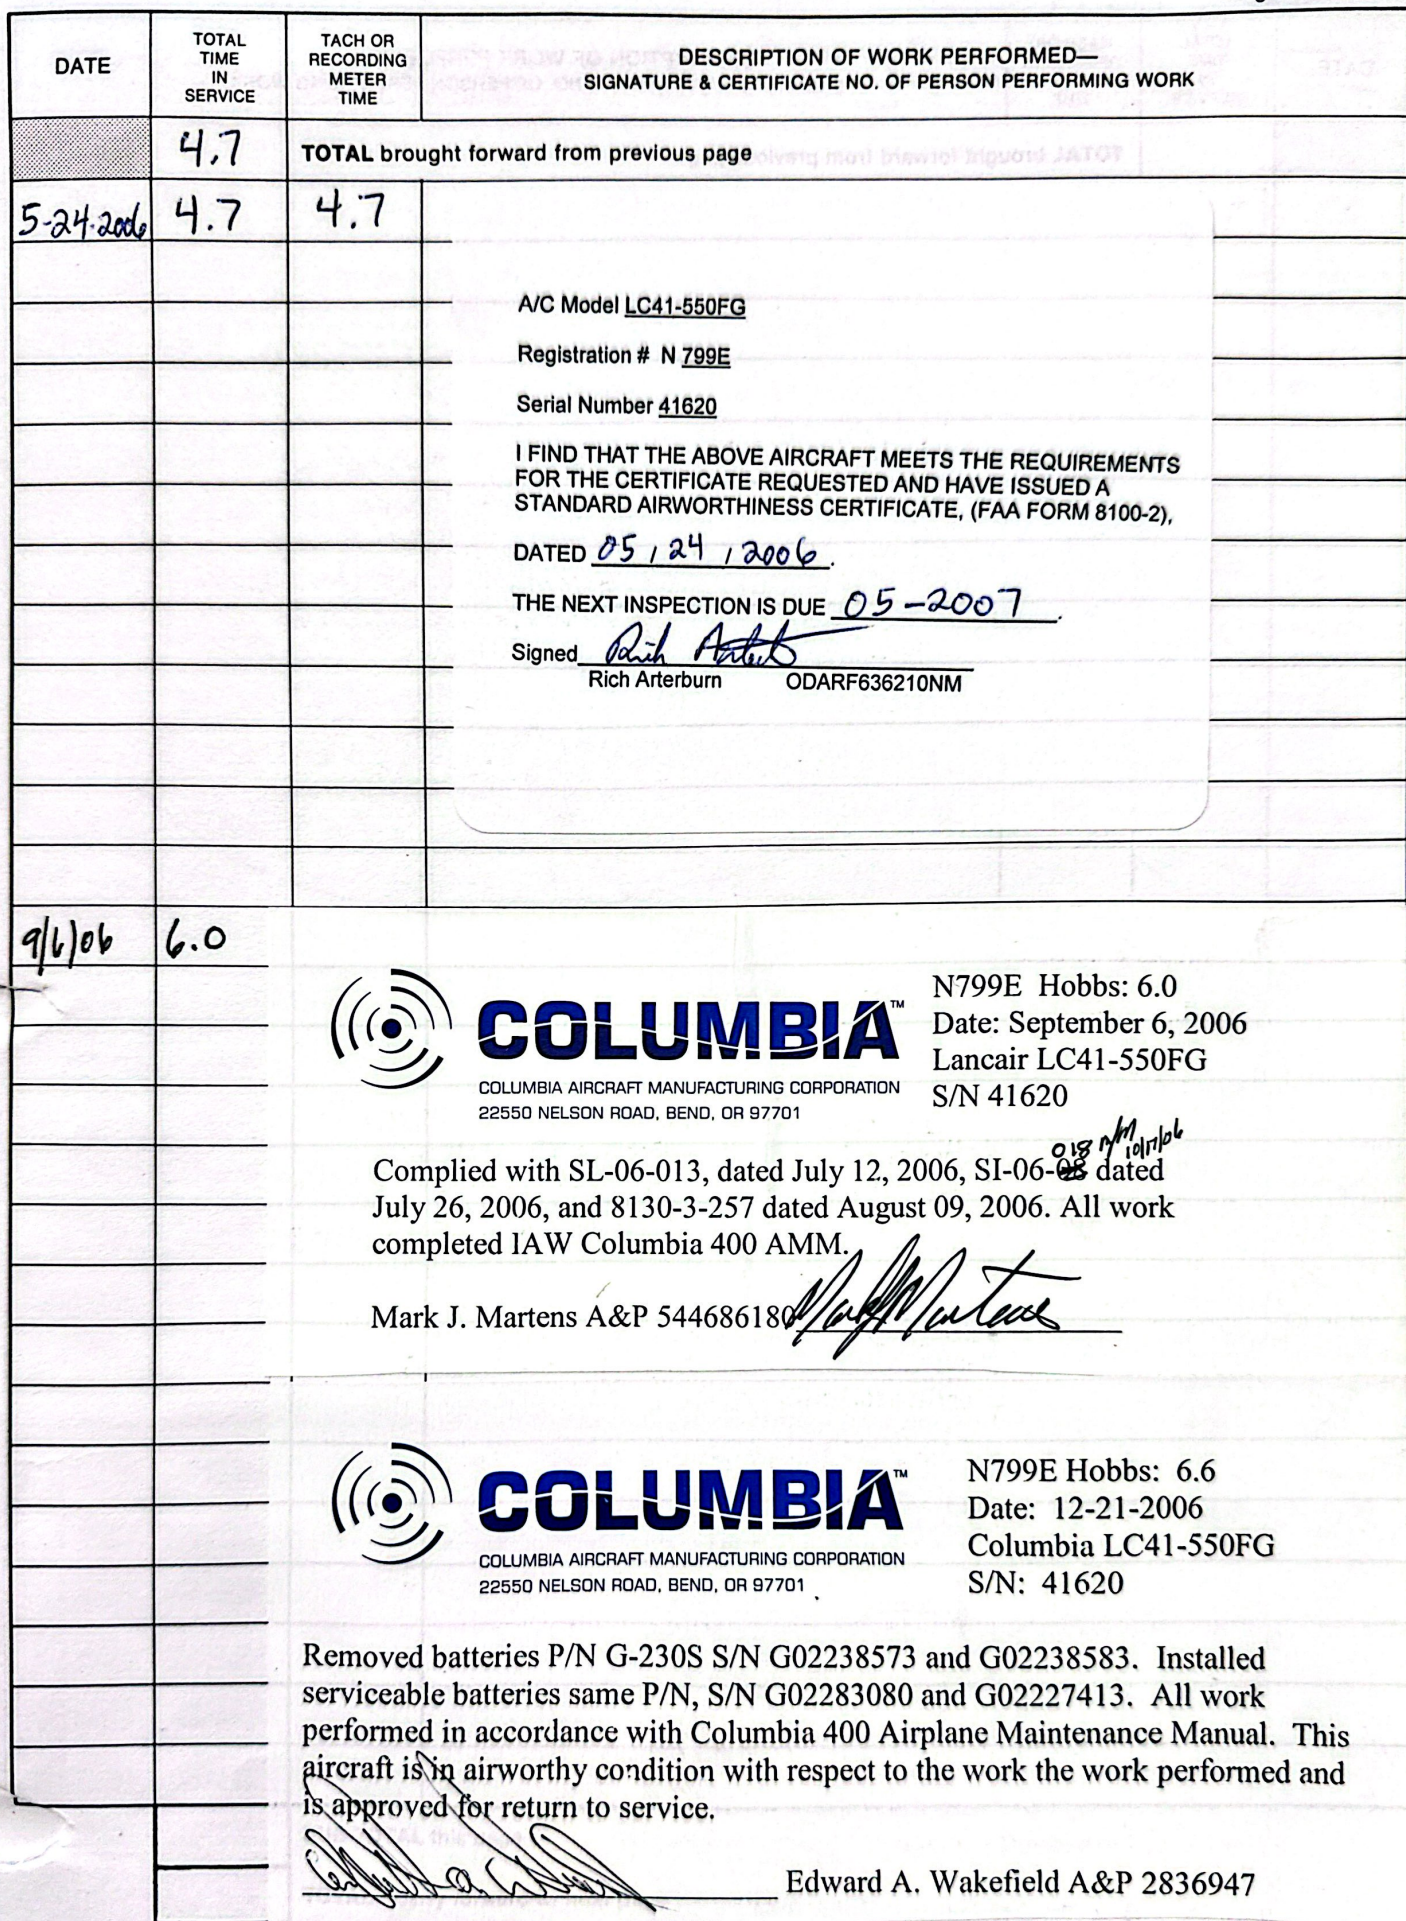 DATE
TOTAL
TIME
IN
SERVICE
TACH OR
RECORDING
METER
TIME
DESCRIPTION OF WORK PERFORMED—
SIGNATURE & CERTIFICATE NO. OF PERSON PERFORMING WORK
4.7 TOTAL brought forward from previous page
5-24-2006 4.7 4.7
A/C Model LC41-550FG
Registration # N 799E
Serial Number 41620
I FIND THAT THE ABOVE AIRCRAFT MEETS THE REQUIREMENTS
FOR THE CERTIFICATE REQUESTED AND HAVE ISSUED A
STANDARD AIRWORTHINESS CERTIFICATE, (FAA FORM 8100-2),
DATED 05 / 24 / 2006.
THE NEXT INSPECTION IS DUE 05-2007.
Signed Rich Arterburn
Rich Arterburn ODARF636210NM
9/6/06 6.0
COLUMBIA™
COLUMBIA AIRCRAFT MANUFACTURING CORPORATION
22550 NELSON ROAD, BEND, OR 97701
N799E Hobbs: 6.0
Date: September 6, 2006
Lancair LC41-550FG
S/N 41620
018 10/17/06
Complied with SL-06-013, dated July 12, 2006, SI-06-08 dated
July 26, 2006, and 8130-3-257 dated August 09, 2006. All work
completed IAW Columbia 400 AMM.
Mark J. Martens A&P 544686180 Mark J Martens
COLUMBIA™
COLUMBIA AIRCRAFT MANUFACTURING CORPORATION
22550 NELSON ROAD, BEND, OR 97701
N799E Hobbs: 6.6
Date: 12-21-2006
Columbia LC41-550FG
S/N: 41620
Removed batteries P/N G-230S S/N G02238573 and G02238583. Installed
serviceable batteries same P/N, S/N G02283080 and G02227413. All work
performed in accordance with Columbia 400 Airplane Maintenance Manual. This
aircraft is in airworthy condition with respect to the work the work performed and
is approved for return to service.
Edward A. Wakefield A&P 2836947